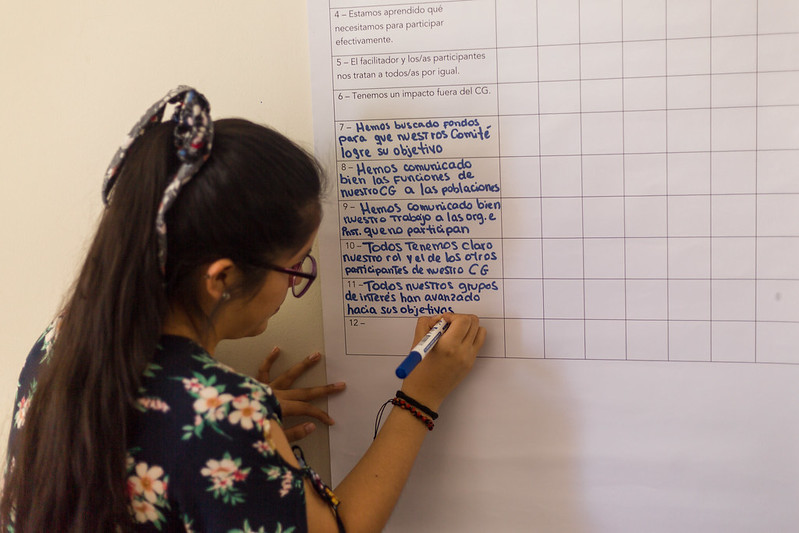 4 – Estamos aprendido qué
necesitamos para participar
efectivamente.
5 – El facilitador y los/as participantes
nos tratan a todos/as por igual.
6 – Tenemos un impacto fuera del CG.
7 – Hemos buscado fondos
para que nuestros Comité
logre su objetivo
8 – Hemos comunicado
bien las funciones de
nuestro CG a las poblaciones
9 – Hemos comunicado bien
nuestro trabajo a las org. e
Inst. que no participan
10 – Todos Tenemos claro
nuestro rol y el de los otros
participantes de nuestro CG
11 – Todos nuestros grupos
de interés han avanzado
hacia sus objetivos
12 –